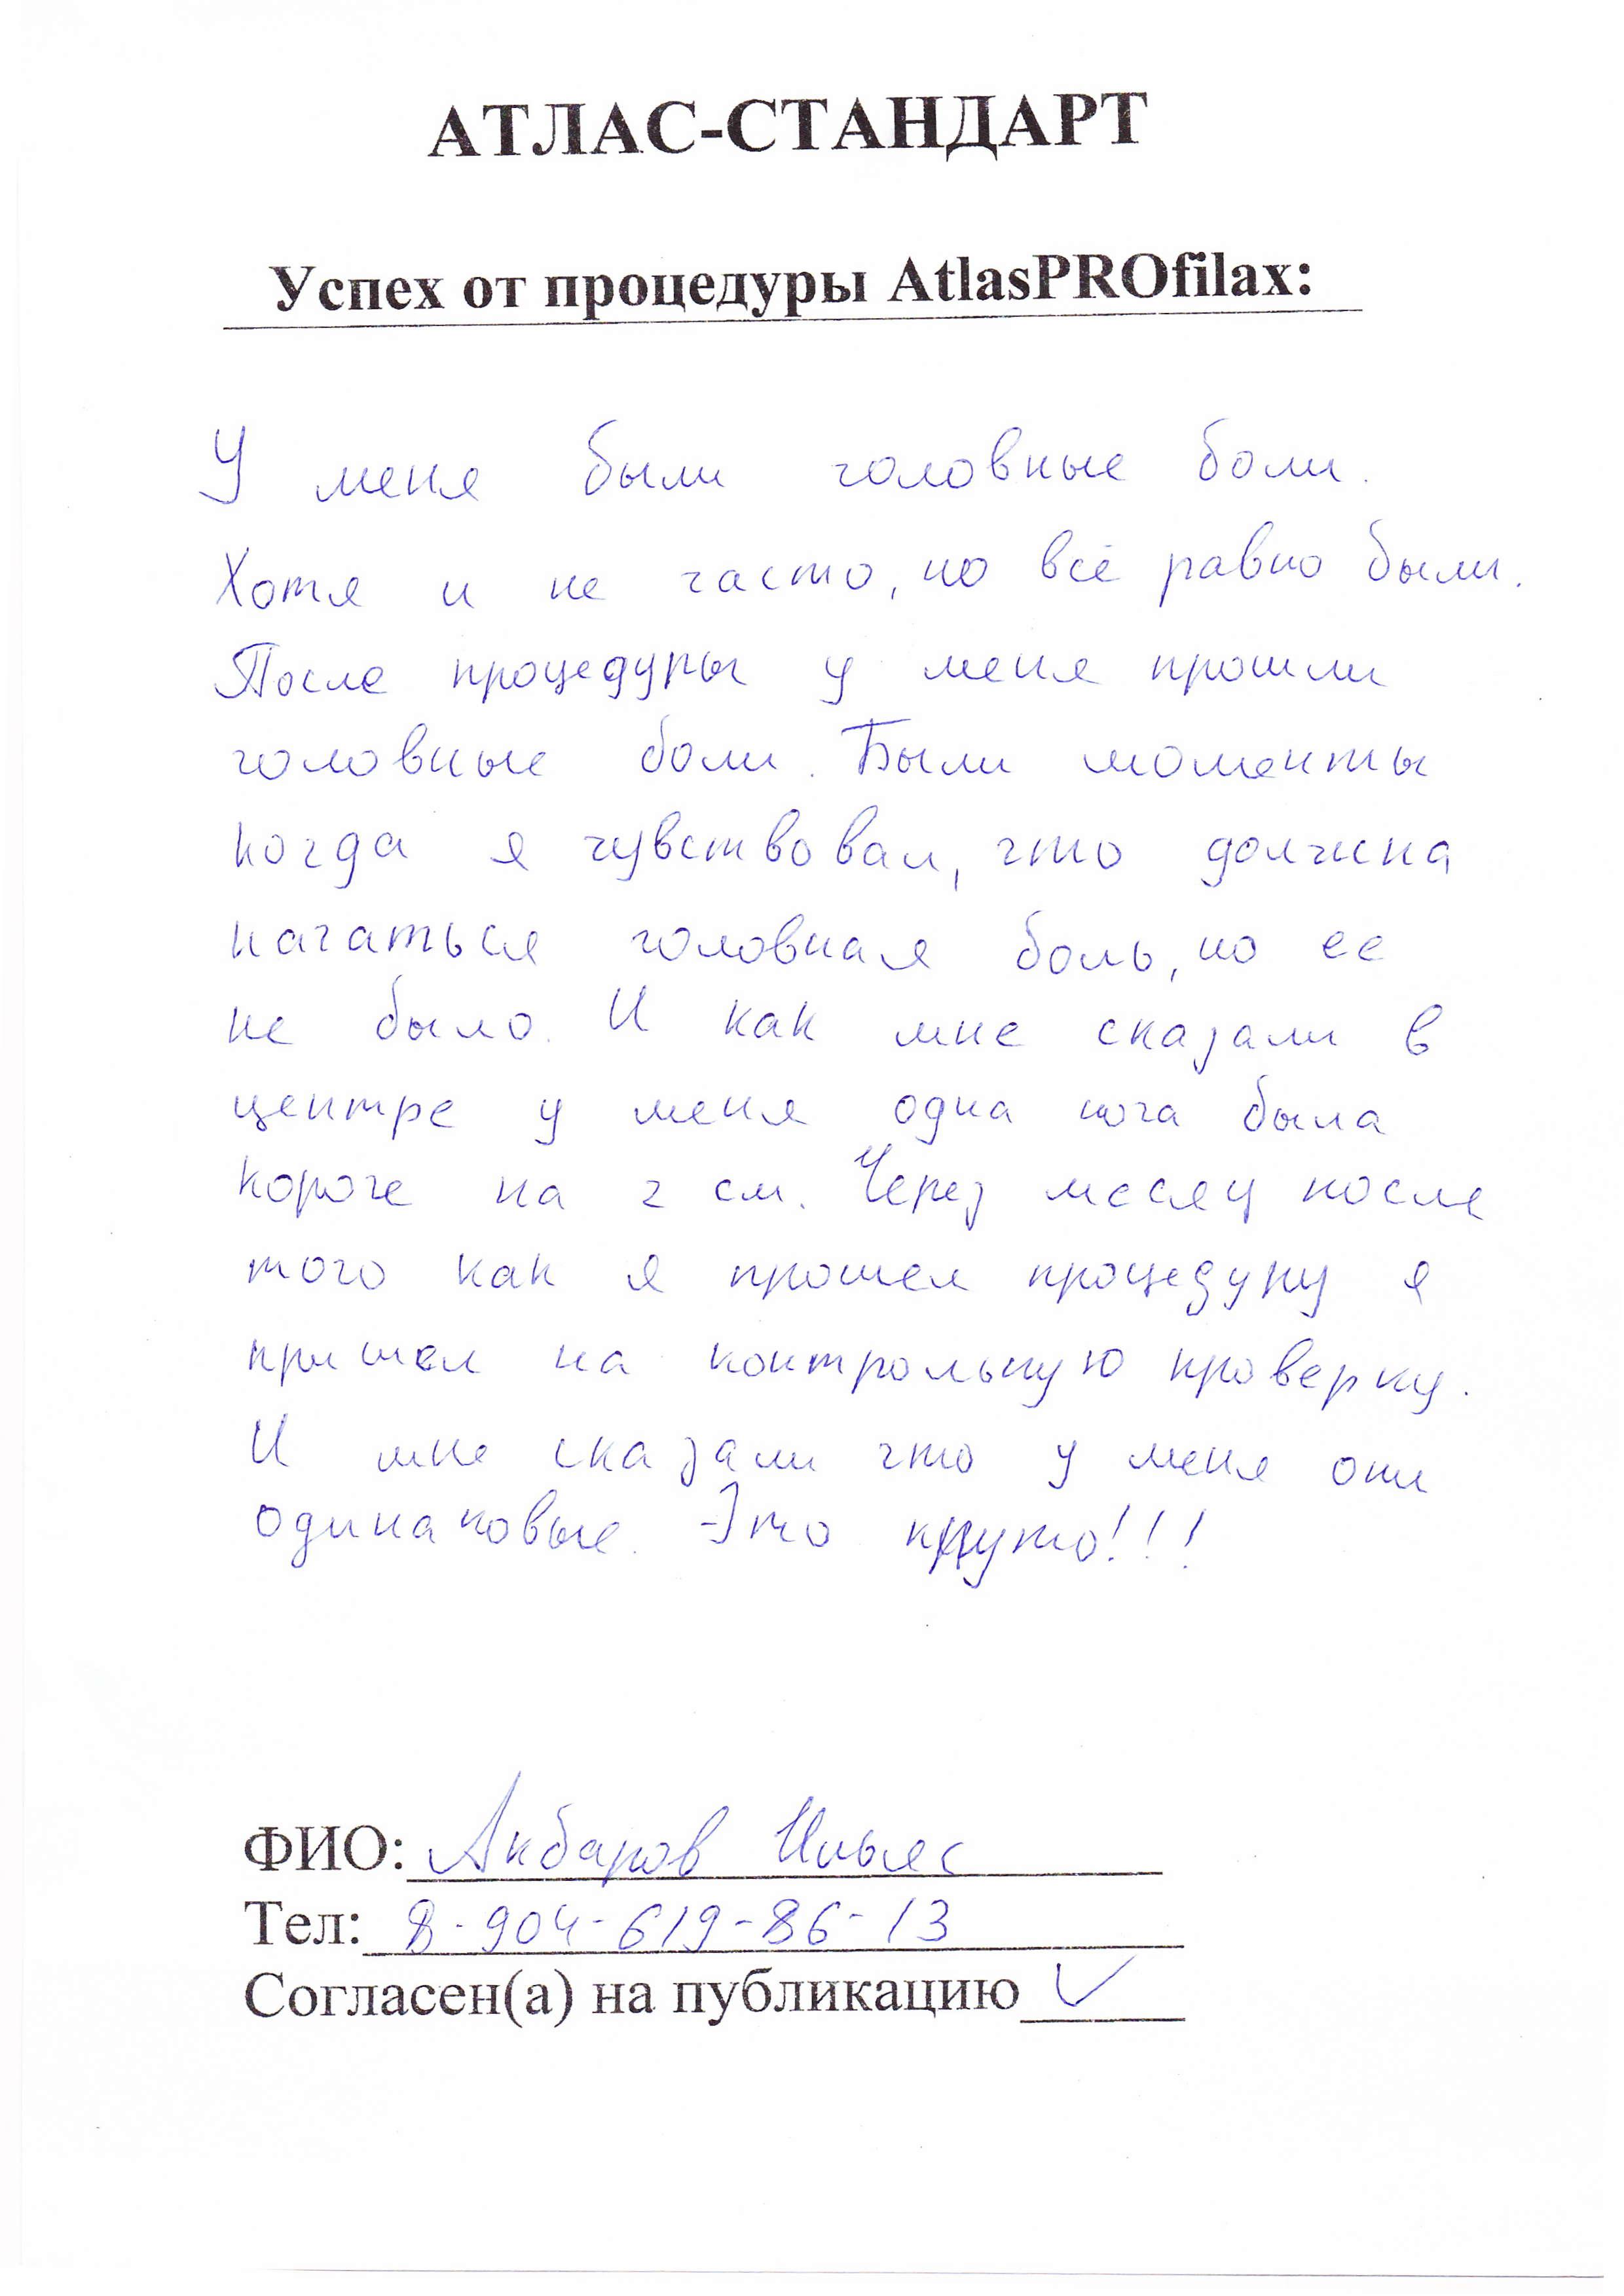 АТЛАС-СТАНДАРТ
Успех от процедуры AtlasPROfilax:
У меня были головные боли.
Хотя и не часто, но всё равно были.
После процедуры у меня прошли
головные боли. Были моменты
когда я чувствовал, что должна
начаться головная боль, но ее
не было. И как мне сказали в
центре у меня одна нога была
короче на 2 см. Через месяц после
того как я прошел процедуру я
пришел на контрольную проверку.
И мне сказали что у меня они
одинаковые. Это круто!!!
ФИО: Акбаров Ильяс
Тел: 8-904-619-86-13
Согласен(а) на публикацию ✓